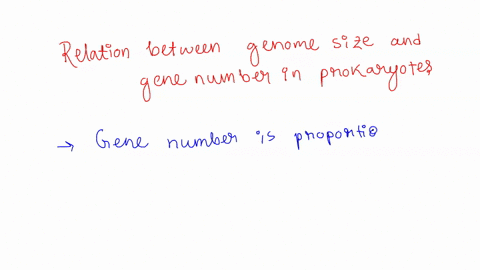 Relation between genome size and
gene number in prokaryotes
→ Gene number is proportio